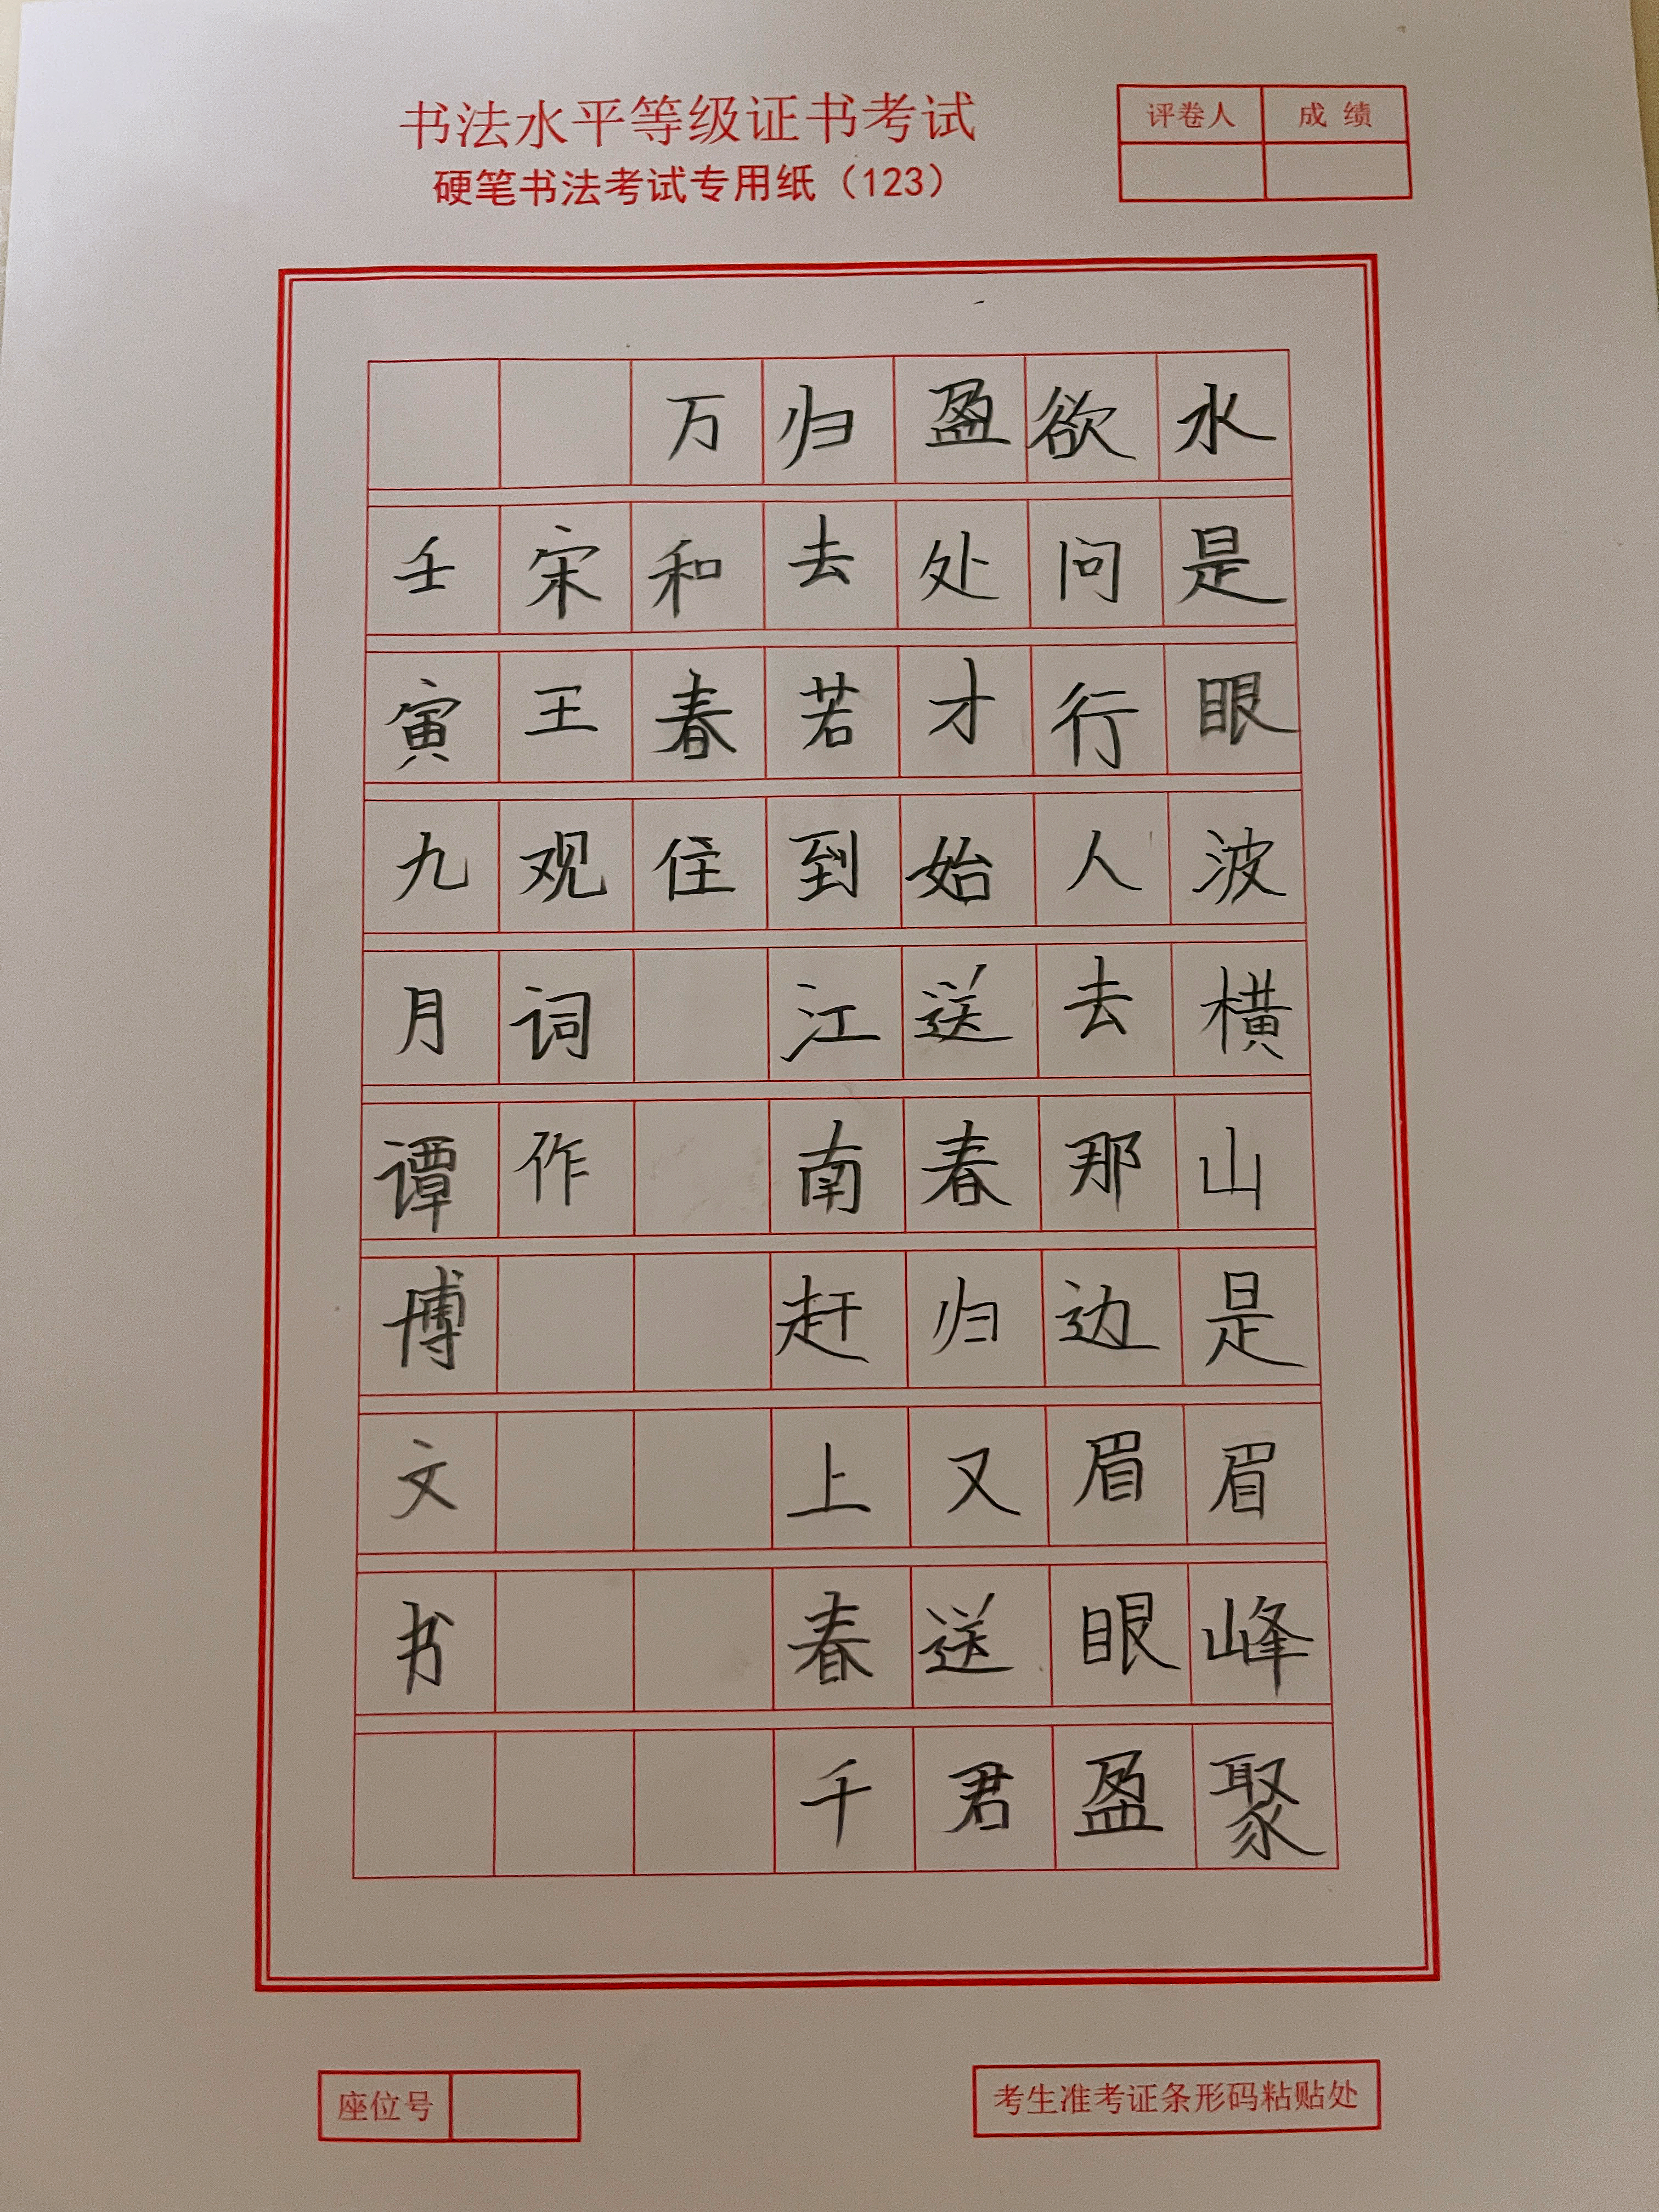 书法水平等级证书考试
硬笔书法考试专用纸（123）
评卷人 成绩
水是眼波横山是眉峰聚
欲问行人去那边眉眼盈
盈处才始送春归又送君
归去若到江南赶上春千
万和春住
宋王观词作
壬寅九月谭博文书
座位号
考生准考证条形码粘贴处